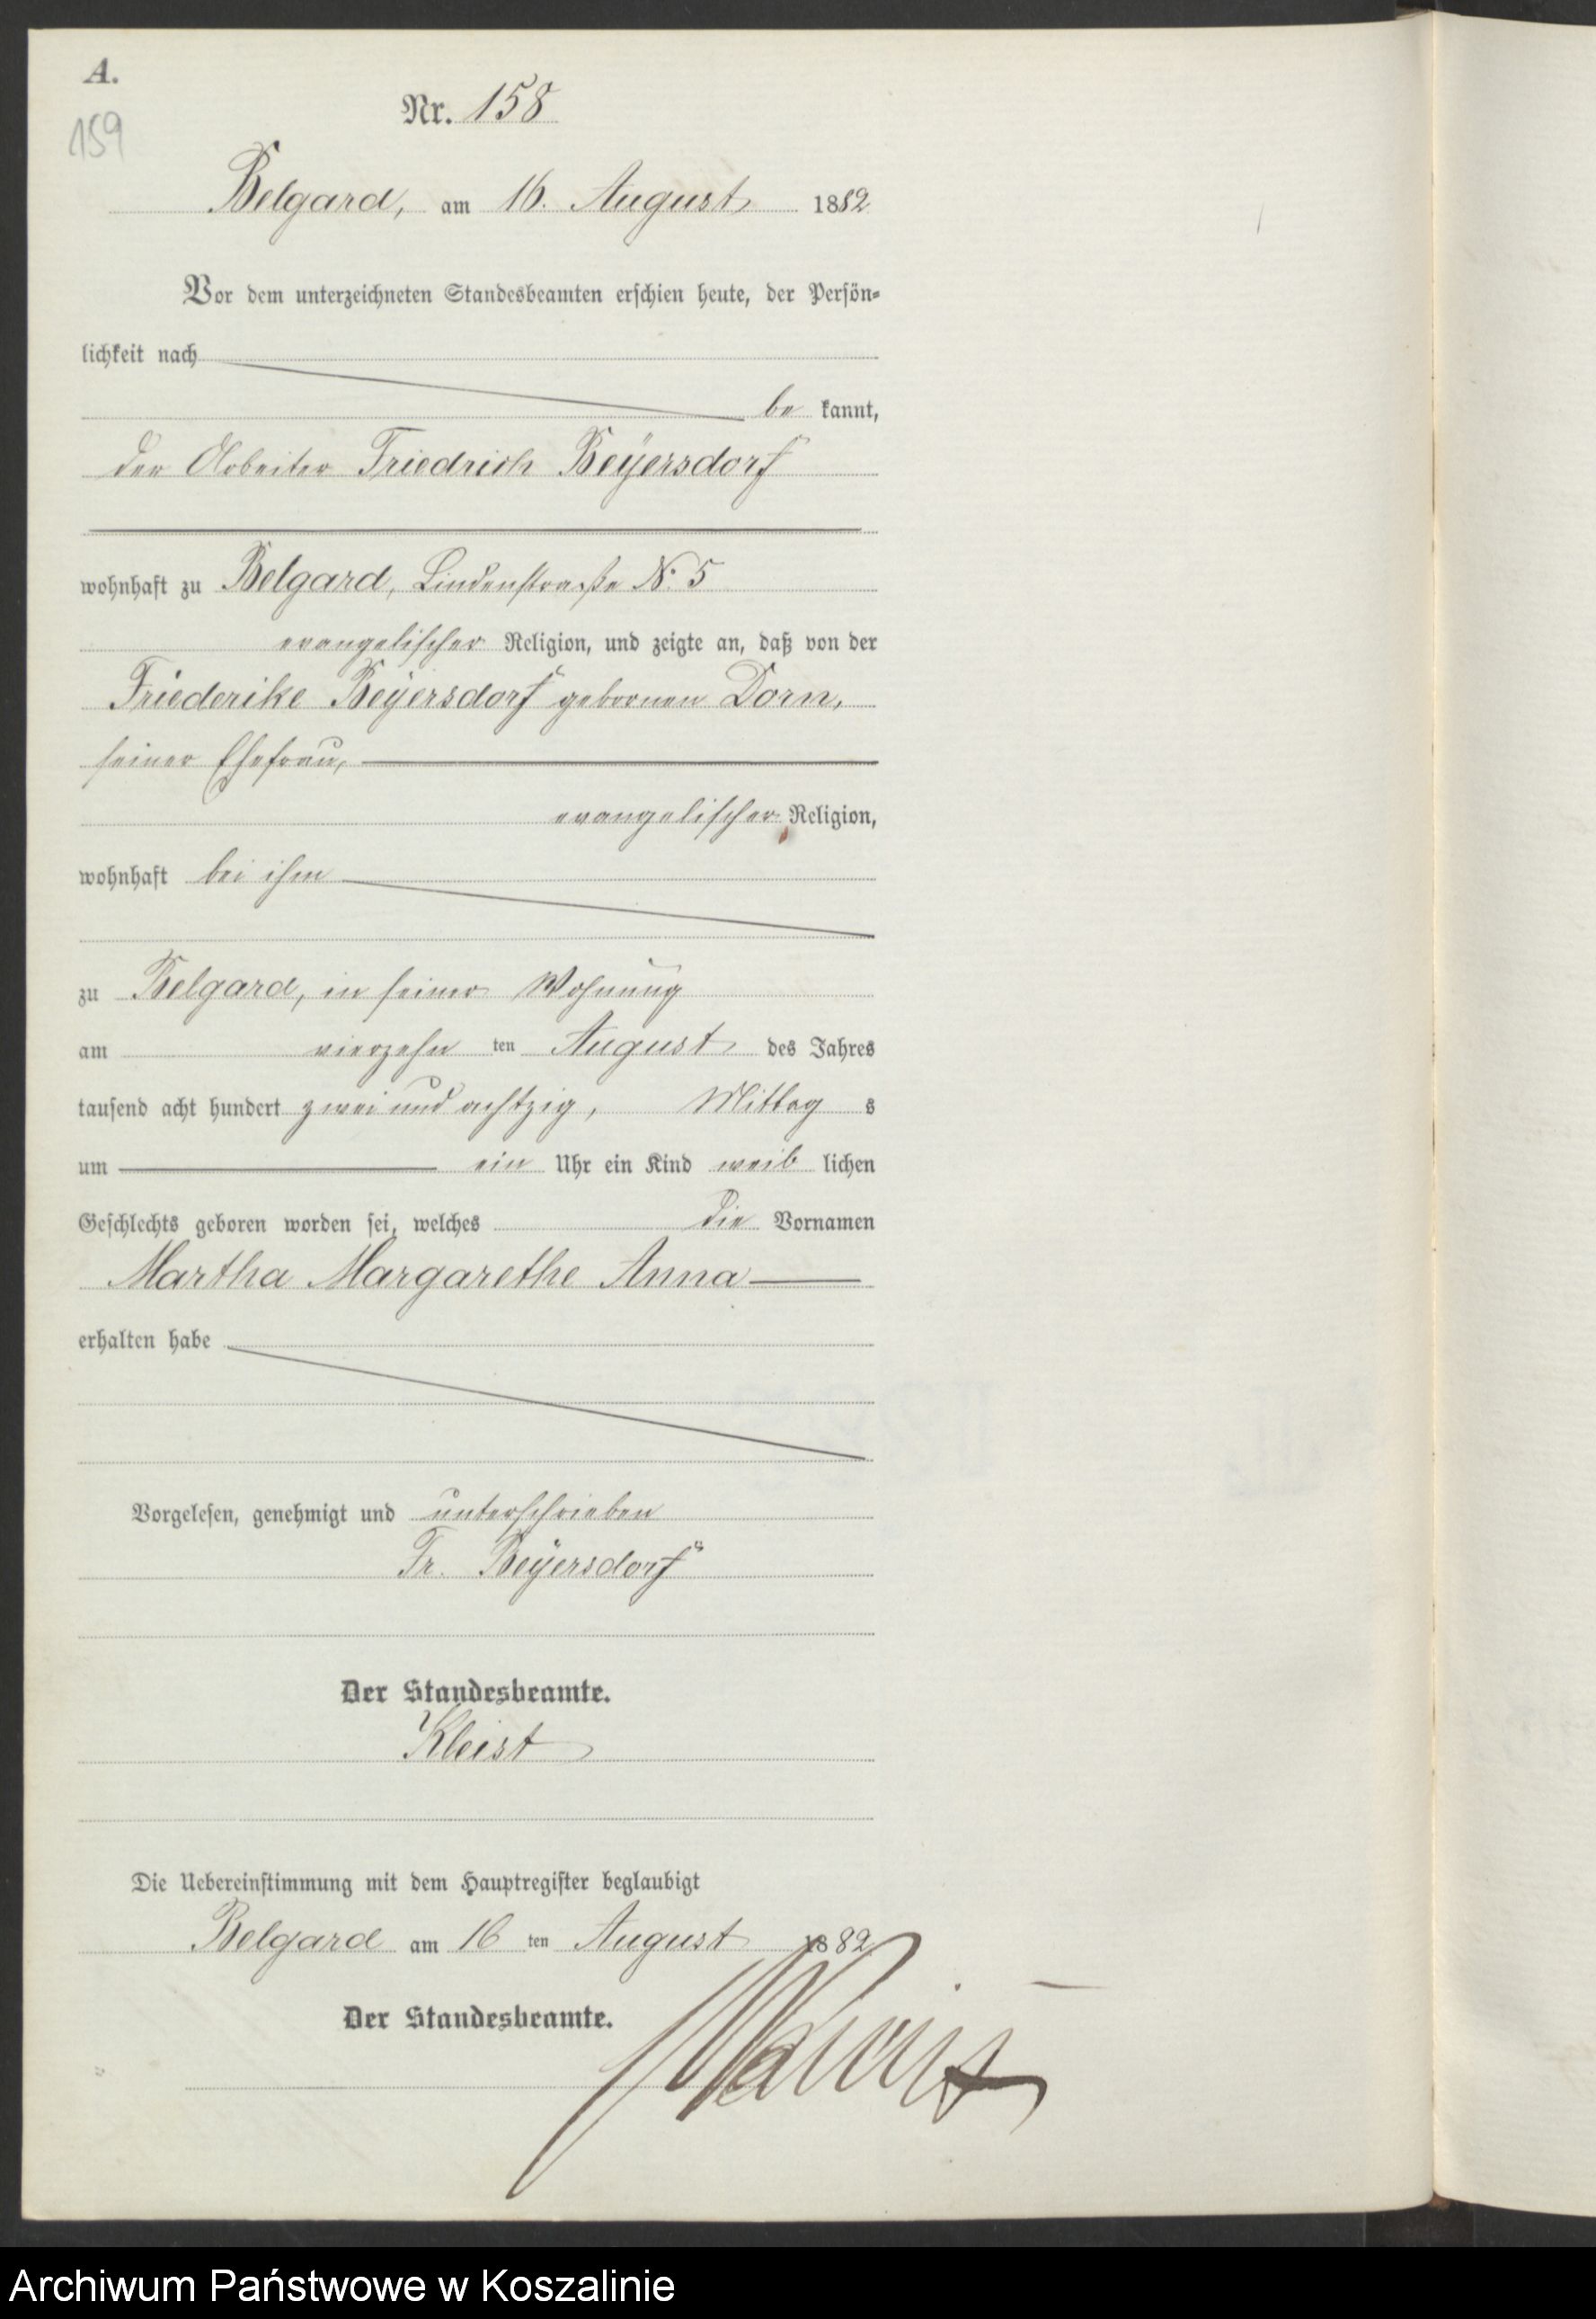 A.
159
Nr. 158
Belgard, am 16. August 1882
Vor dem unterzeichneten Standesbeamten erschien heute, der Persön-
lichkeit nach
be kannt,
der Arbeiter Friedrich Beÿersdorf
wohnhaft zu Belgard, Lindenstraße No. 5
evangelischer Religion, und zeigte an, daß von der
Friederike Beÿersdorf gebornen Dorn,
seiner Ehefrau,
evangelischer Religion,
wohnhaft bei ihm
zu Belgard, in seiner Wohnung
am vierzehn ten August des Jahres
tausend acht hundert zwei und achtzig, Mittag s
um ein Uhr ein Kind weib lichen
Geschlechts geboren worden sei, welches die Vornamen
Martha Margarethe Anna
erhalten habe
Vorgelesen, genehmigt und unterschrieben
Fr. Beÿersdorf
Der Standesbeamte.
Kleist
Die Uebereinstimmung mit dem Hauptregister beglaubigt
Belgard am 16 ten August 1882
Der Standesbeamte.
Archiwum Państwowe w Koszalinie